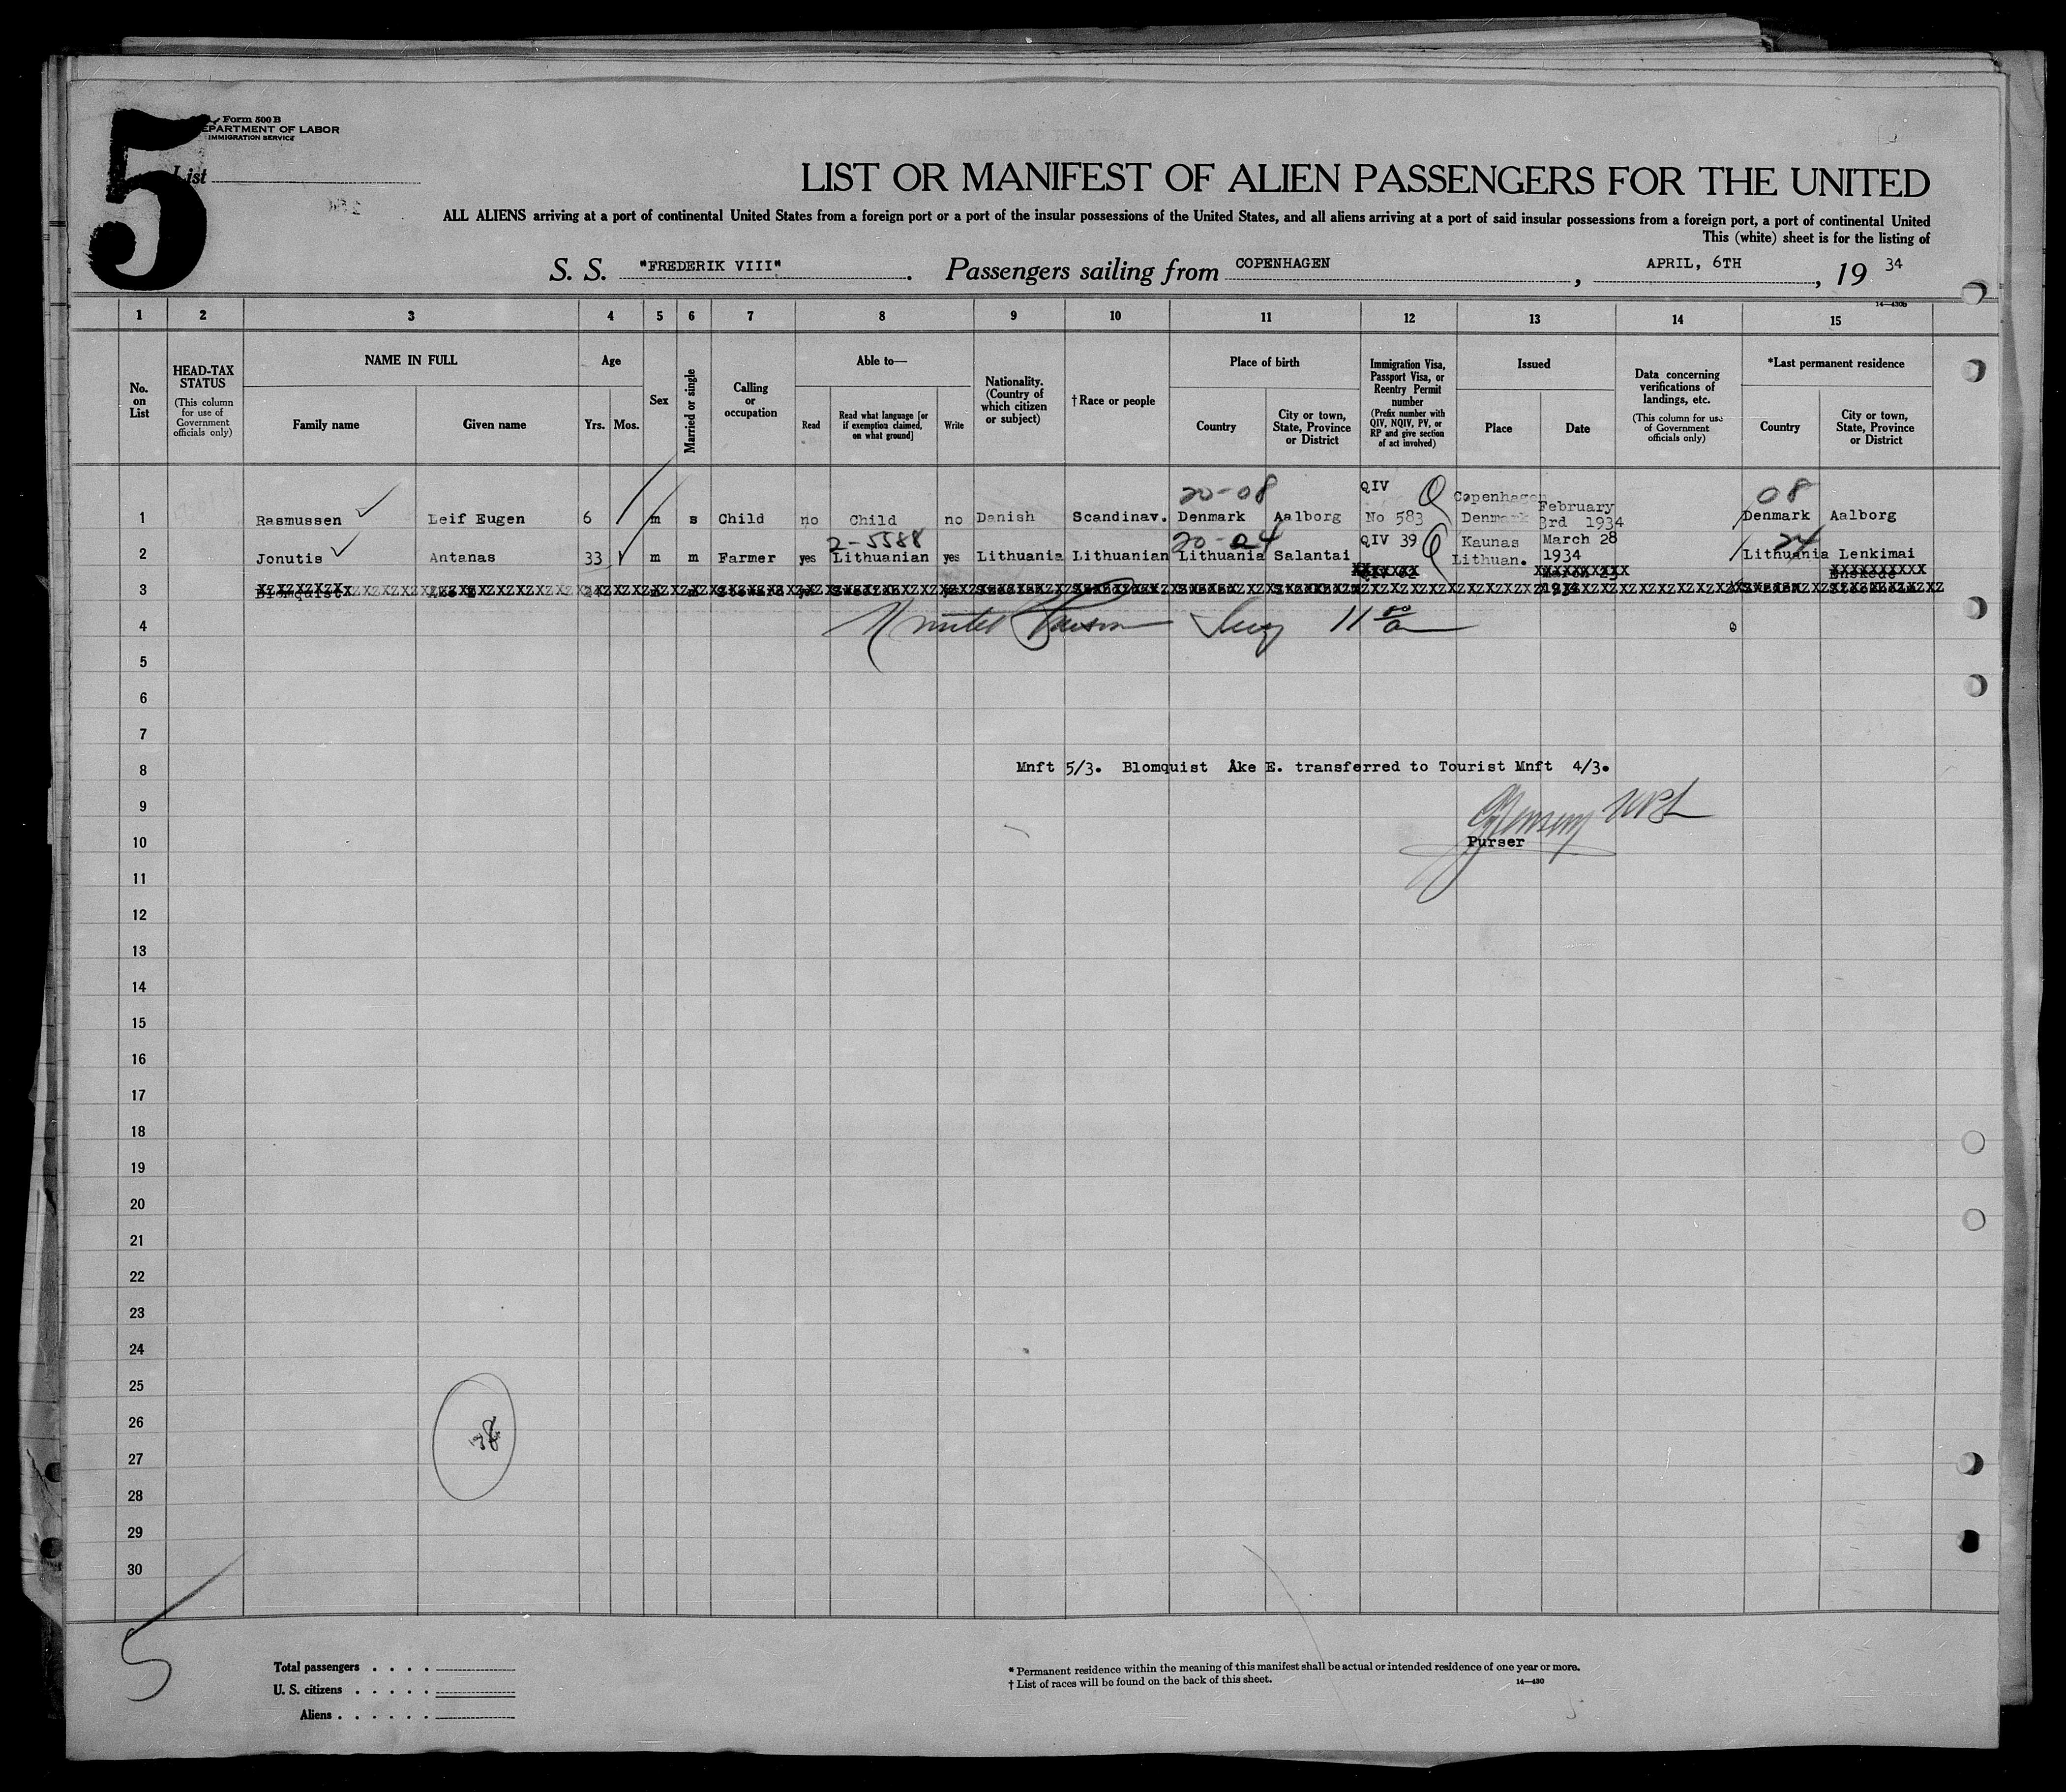 5
Form 500 B
DEPARTMENT OF LABOR
IMMIGRATION SERVICE
List
LIST OR MANIFEST OF ALIEN PASSENGERS FOR THE UNITED
ALL ALIENS arriving at a port of continental United States from a foreign port or a port of the insular possessions of the United States, and all aliens arriving at a port of said insular possessions from a foreign port, a port of continental United
This (white) sheet is for the listing of
S. S. "FREDERIK VIII". Passengers sailing from COPENHAGEN, APRIL, 6TH, 19 34
14—430b
1 2 3 4 5 6 7 8 9 10 11 12 13 14 15
No. on List
HEAD-TAX STATUS
(This column for use of Government officials only)
NAME IN FULL
Family name Given name
Age
Yrs. Mos.
Sex
Married or single
Calling or occupation
Able to—
Read
Read what language [or if exemption claimed, on what ground]
Write
Nationality. (Country of which citizen or subject)
† Race or people
Place of birth
Country
City or town, State, Province or District
Immigration Visa, Passport Visa, or Reentry Permit number
(Prefix number with QIV, NQIV, PV, or RP and give section of act involved)
Issued
Place Date
Data concerning verifications of landings, etc.
(This column for use of Government officials only)
*Last permanent residence
Country
City or town, State, Province or District
20-08 QIV Q Copenhagen February 08
1 Rasmussen Leif Eugen 6 m s Child no Child no Danish Scandinav. Denmark Aalborg No 583 Denmark 3rd 1934 Denmark Aalborg
2-5588 20-24 QIV 39 Q Kaunas March 28 24
2 Jonutis Antanas 33 m m Farmer yes Lithuanian yes Lithuania Lithuanian Lithuania Salantai Lithuan. 1934 Lithuania Lenkimai
3
4 11 00
5
6
7
8 Mnft 5/3. Blomquist Åke E. transferred to Tourist Mnft 4/3.
9
10 Purser
11
12
13
14
15
16
17
18
19
20
21
22
23
24
25
26
27
28
29
30
5
Total passengers
U. S. citizens
Aliens
* Permanent residence within the meaning of this manifest shall be actual or intended residence of one year or more.
† List of races will be found on the back of this sheet.
14—430